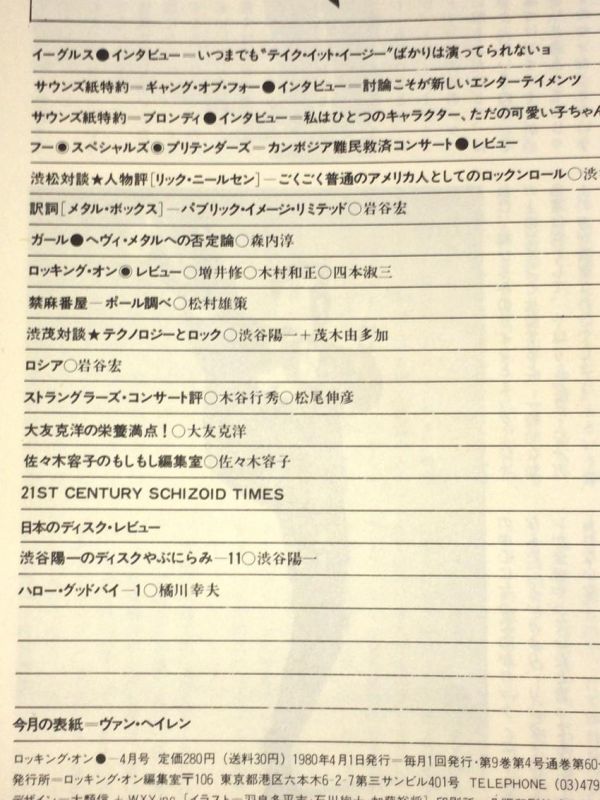 イーグルス●インタビュー＝いつまでも“テイク・イット・イージー”ばかりは演ってられないョ
サウンズ紙特約＝ギャング・オブ・フォー●インタビュー＝討論こそが新しいエンターテイメンツ
サウンズ紙特約＝ブロンディ●インタビュー＝私はひとつのキャラクター、ただの可愛い子ちゃん
フー◉スペシャルズ◉プリテンダーズ＝カンボジア難民救済コンサート●レビュー
渋松対談★人物評[リック・ニールセン]―ごくごく普通のアメリカ人としてのロックンロール○渋
訳詞[メタル・ボックス]―パブリック・イメージ・リミテッド○岩谷宏
ガール●ヘヴィ・メタルへの否定論○森内淳
ロッキング・オン◉レビュー○増井修○木村和正○四本淑三
禁麻番屋―ポール調べ○松村雄策
渋茂対談★テクノロジーとロック○渋谷陽一＋茂木由多加
ロシア○岩谷宏
ストラングラーズ・コンサート評○木谷行秀○松尾伸彦
大友克洋の栄養満点！○大友克洋
佐々木容子のもしもし編集室○佐々木容子
21ST CENTURY SCHIZOID TIMES
日本のディスク・レビュー
渋谷陽一のディスクやぶにらみ―11○渋谷陽一
ハロー・グッドバイ―1○橘川幸夫
今月の表紙＝ヴァン・ヘイレン
ロッキング・オン●―4月号 定価280円（送料30円）1980年4月1日発行＝毎月1回発行・第9巻第4号通巻第60
発行所＝ロッキング・オン編集室〒106 東京都港区六本木6-2-7第三サンビル401号 TELEPHONE (03)479
デザイン―大類信＋WXY inc.